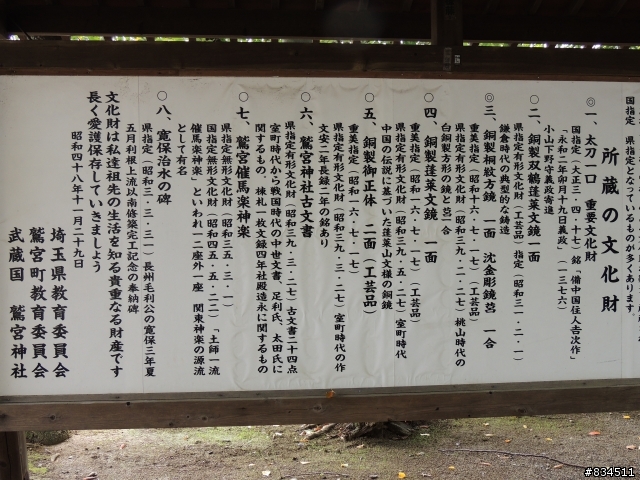 国指定、県指定となっているものが多くあります。
所蔵の文化財
◎一、太刀一口　重要文化財
国指定（大正三・四・十七）銘「備中国住人吉次作」
「永和二年卯月十九日義政」（一三七六）
小山下野守義政寄進
○二、銅製双鶴蓬莱文鏡一面
県指定有形文化財（工芸品）指定（昭和三一・二・一）
鎌倉時代の典型的な鋳造
◎三、銅製桐紋方鏡　一面　沈金彫鏡筥　一合
重美指定（昭和十六・七・一七）（工芸品）
県指定有形文化財（昭和三九・二・二七）桃山時代の
白銅製方形の鏡と筥一合
○四、銅製蓬莱文鏡　一面
重美指定（昭和一六・七・一七）（工芸品）
県指定有形文化財（昭和三九・五・二七）室町時代
中国の伝説に基づいた蓬莱山文様の銅鏡
○五、銅御正体　二面（工芸品）
重美指定（昭和一六・七・一七）
県指定有形文化財（昭和三九・三・二七）室町時代の作
文安二年長録二年の銘あり
○六、鷲宮神社古文書
県指定有形文化財（昭和三九・三・二七）古文書二十四点
室町時代から戦国時代の中世文書、足利氏、太田氏に
関するもの、棟札一枚文録四年社殿造永に関するもの
○七、鷲宮催馬楽神楽
県指定無形文化財（昭和三五・三・一）
国指定無形文化財（昭和四五・五・二二）「土師一流
催馬楽神楽」といわれ一二座外一座　関東神楽の源流
として有名
○八、寛保治水の碑
県指定（昭和三・三・三一）長州毛利公の寛保三年夏
五月利根上流以南修築完工記念の奉納碑
文化財は私達祖先の生活を知る貴重なる財産です
長く愛護保存していきましょう
昭和四十八年十一月二十九日
埼玉県教育委員会
鷲宮町教育委員会
武蔵国　鷲宮神社
#834511